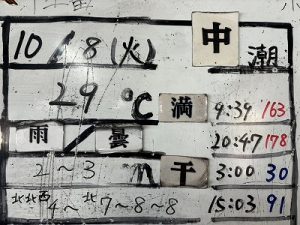 10/8(火) 中潮
29℃ 満 9:39 163
雨/曇 20:47 178
2~3m 干 3:00 30
北北西4~北7~8~8 15:03 91